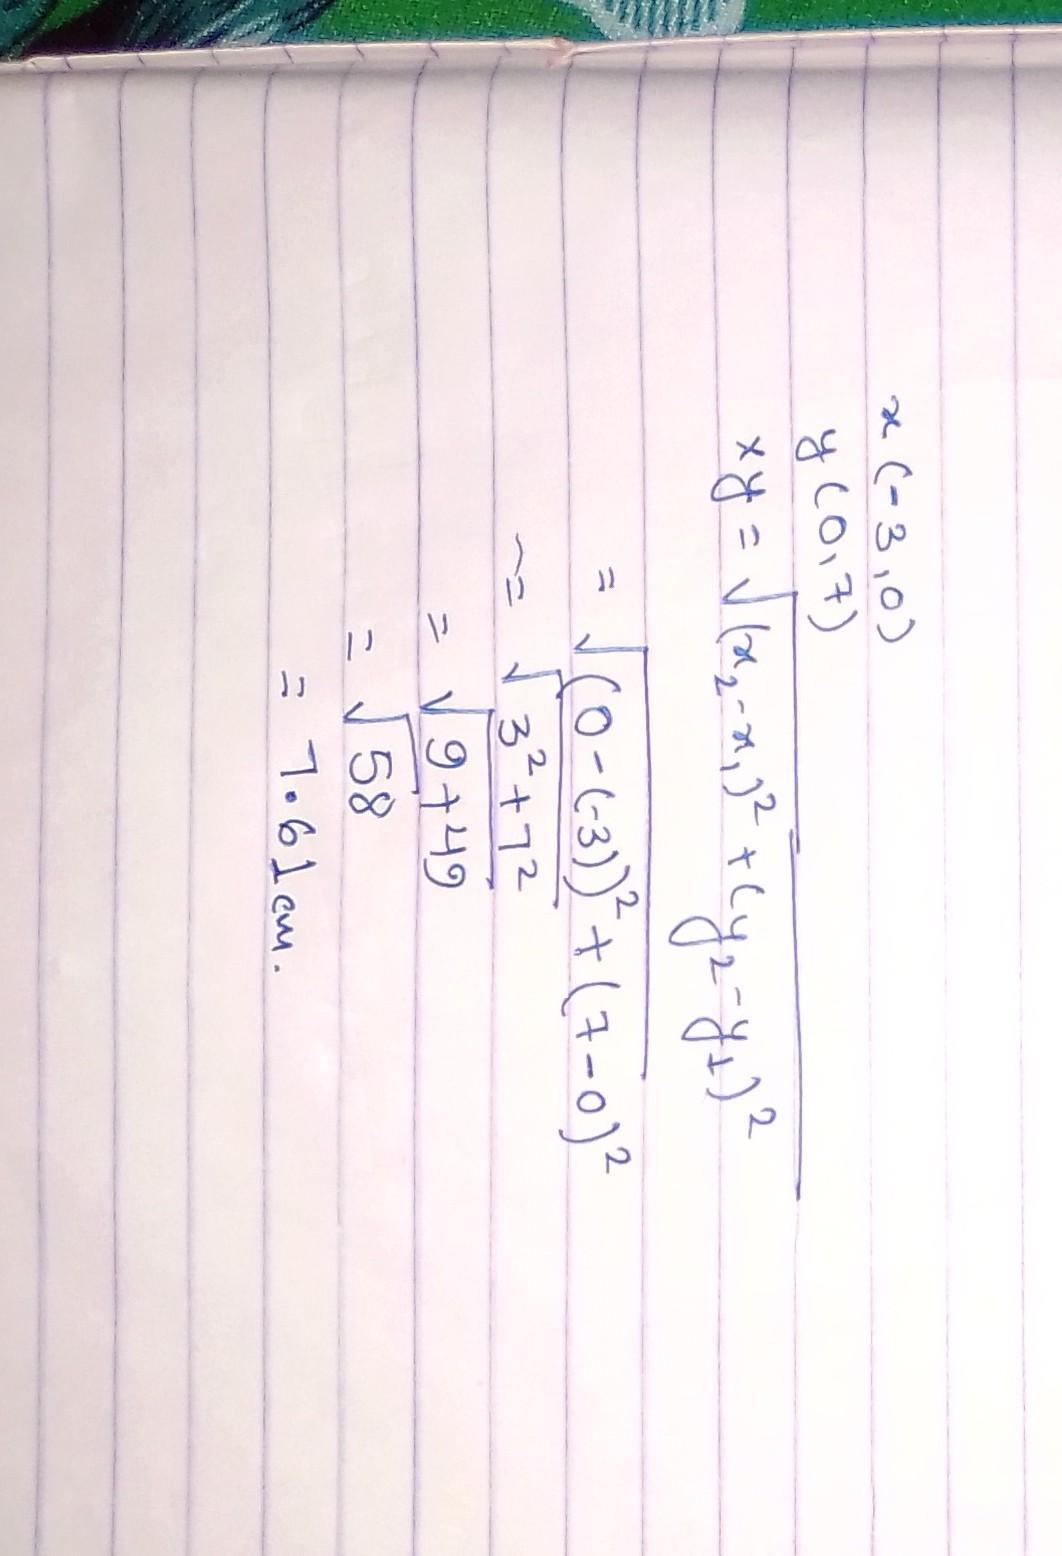 x (-3,0)
y (0,7)
xy = √(x₂-x₁)² + (y₂-y₁)²
= √(0-(-3))² + (7-0)²
~= √3²+7²
= √9+49
= √58
= 7.61cm.